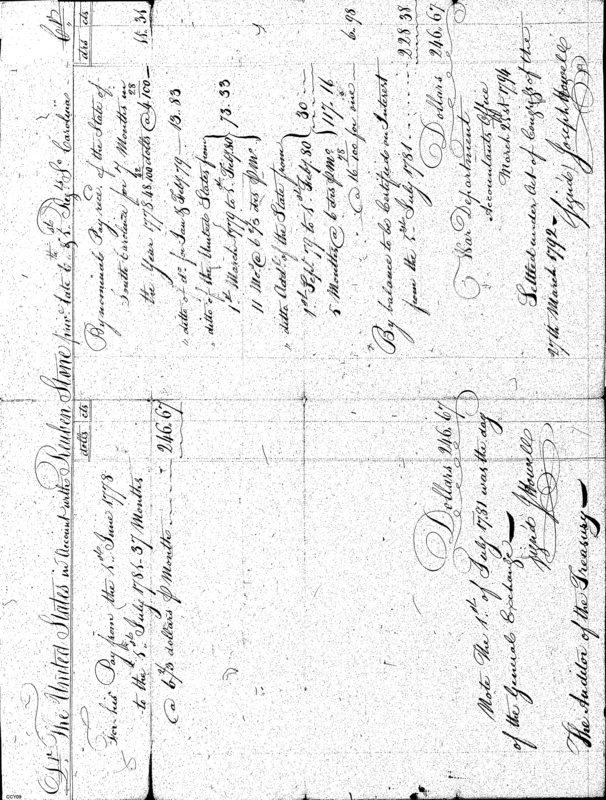 Dr. The United States in Account with Reuben Stone priv. late 6th & 1st Regts So. Carolina Cr.
dolls cts
For his Pay from the 1st June 1778
to the 1st July 1781 - 37 Months
@ 6 2/3 dollars p Month 246.67
Dollars 246.67
Note The 1st of July 1781 was the day
of the General Exchange
signed J Howell
The Auditor of the Treasury
dlrs cts
By nominate Pay rece. of the State of
South Carolina for 7 Months in
the Year 1778 48 dolls @ 4.100
ditto o do. for Jan & Feby 79 13.83
ditto of the United States from
1st March 1779 to 1 Feby 80 73.33
11 Mo @ 6 2/3 dls p Mo
ditto Addl. of the State from
1st Sept 79 to 1 Feby 80 30
5 Months @ 6 dls p Mo 117.16
@ 16 100 for one 6.98
By balance to be Certified on Interest
from the 1st July 1781 228.38
Dollars 246.67
War Department
Accountants Office
March 21st 1794
Settled under Act of Congress of the
27th March 1792
Signed Joseph Howell
CCY09